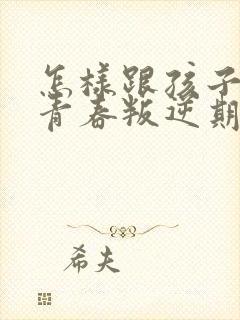 怎样跟孩子
青春叛逆期
希夫